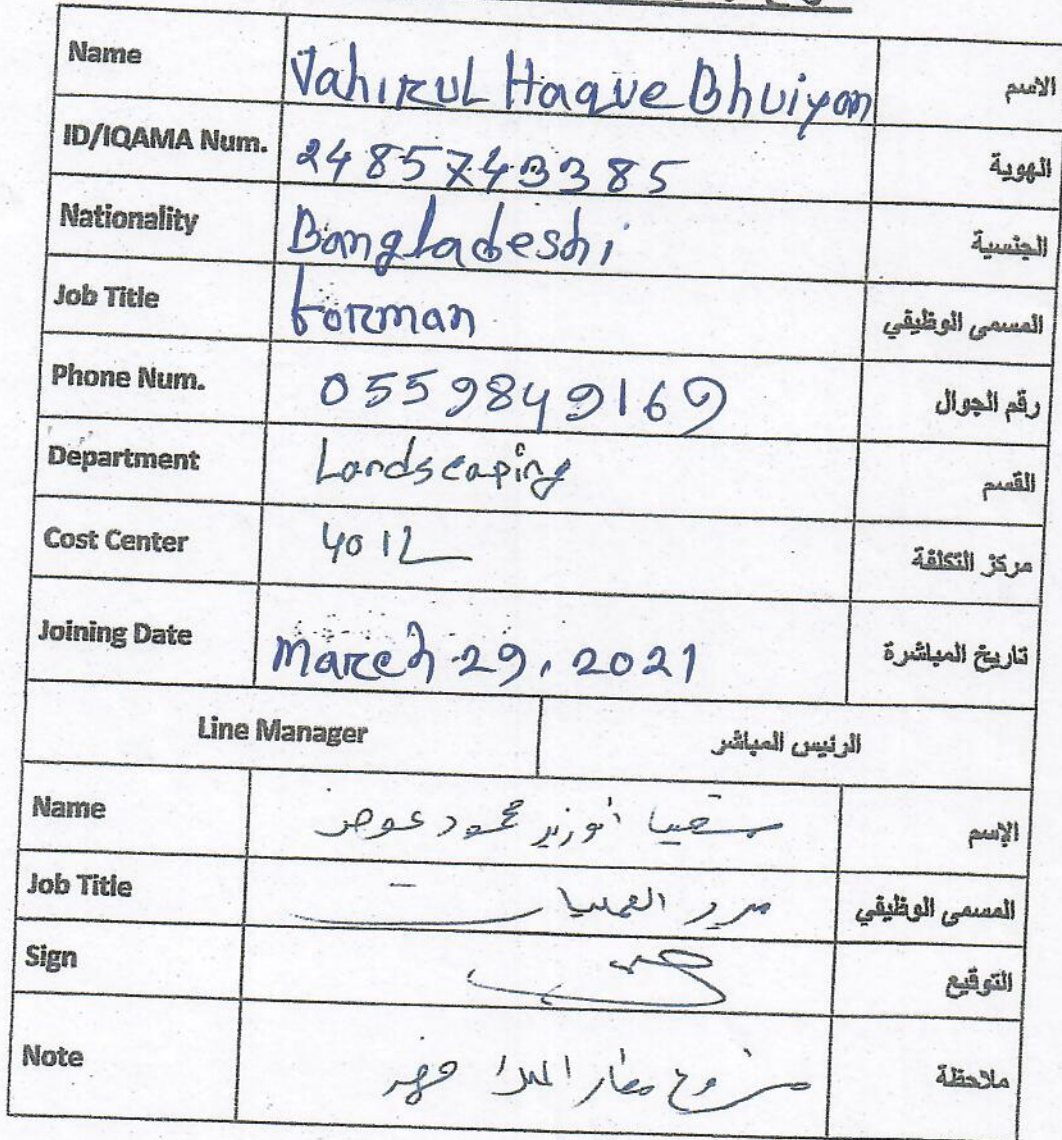 Name Jahirul Haque Bhuiyan الاسم
ID/IQAMA Num. 2485743385 الهوية
Nationality Bangladeshi الجنسية
Job Title Forman المسمى الوظيفي
Phone Num. 0559849169 رقم الجوال
Department Landscaping القسم
Cost Center 4012 مركز التكلفة
Joining Date March 29, 2021 تاريخ المباشرة
Line Manager الرئيس المباشر
Name محمود عوض الإسم
Job Title مدير العمليات المسمى الوظيفي
Sign التوقيع
Note مشروع مطار الملك فهد ملاحظة